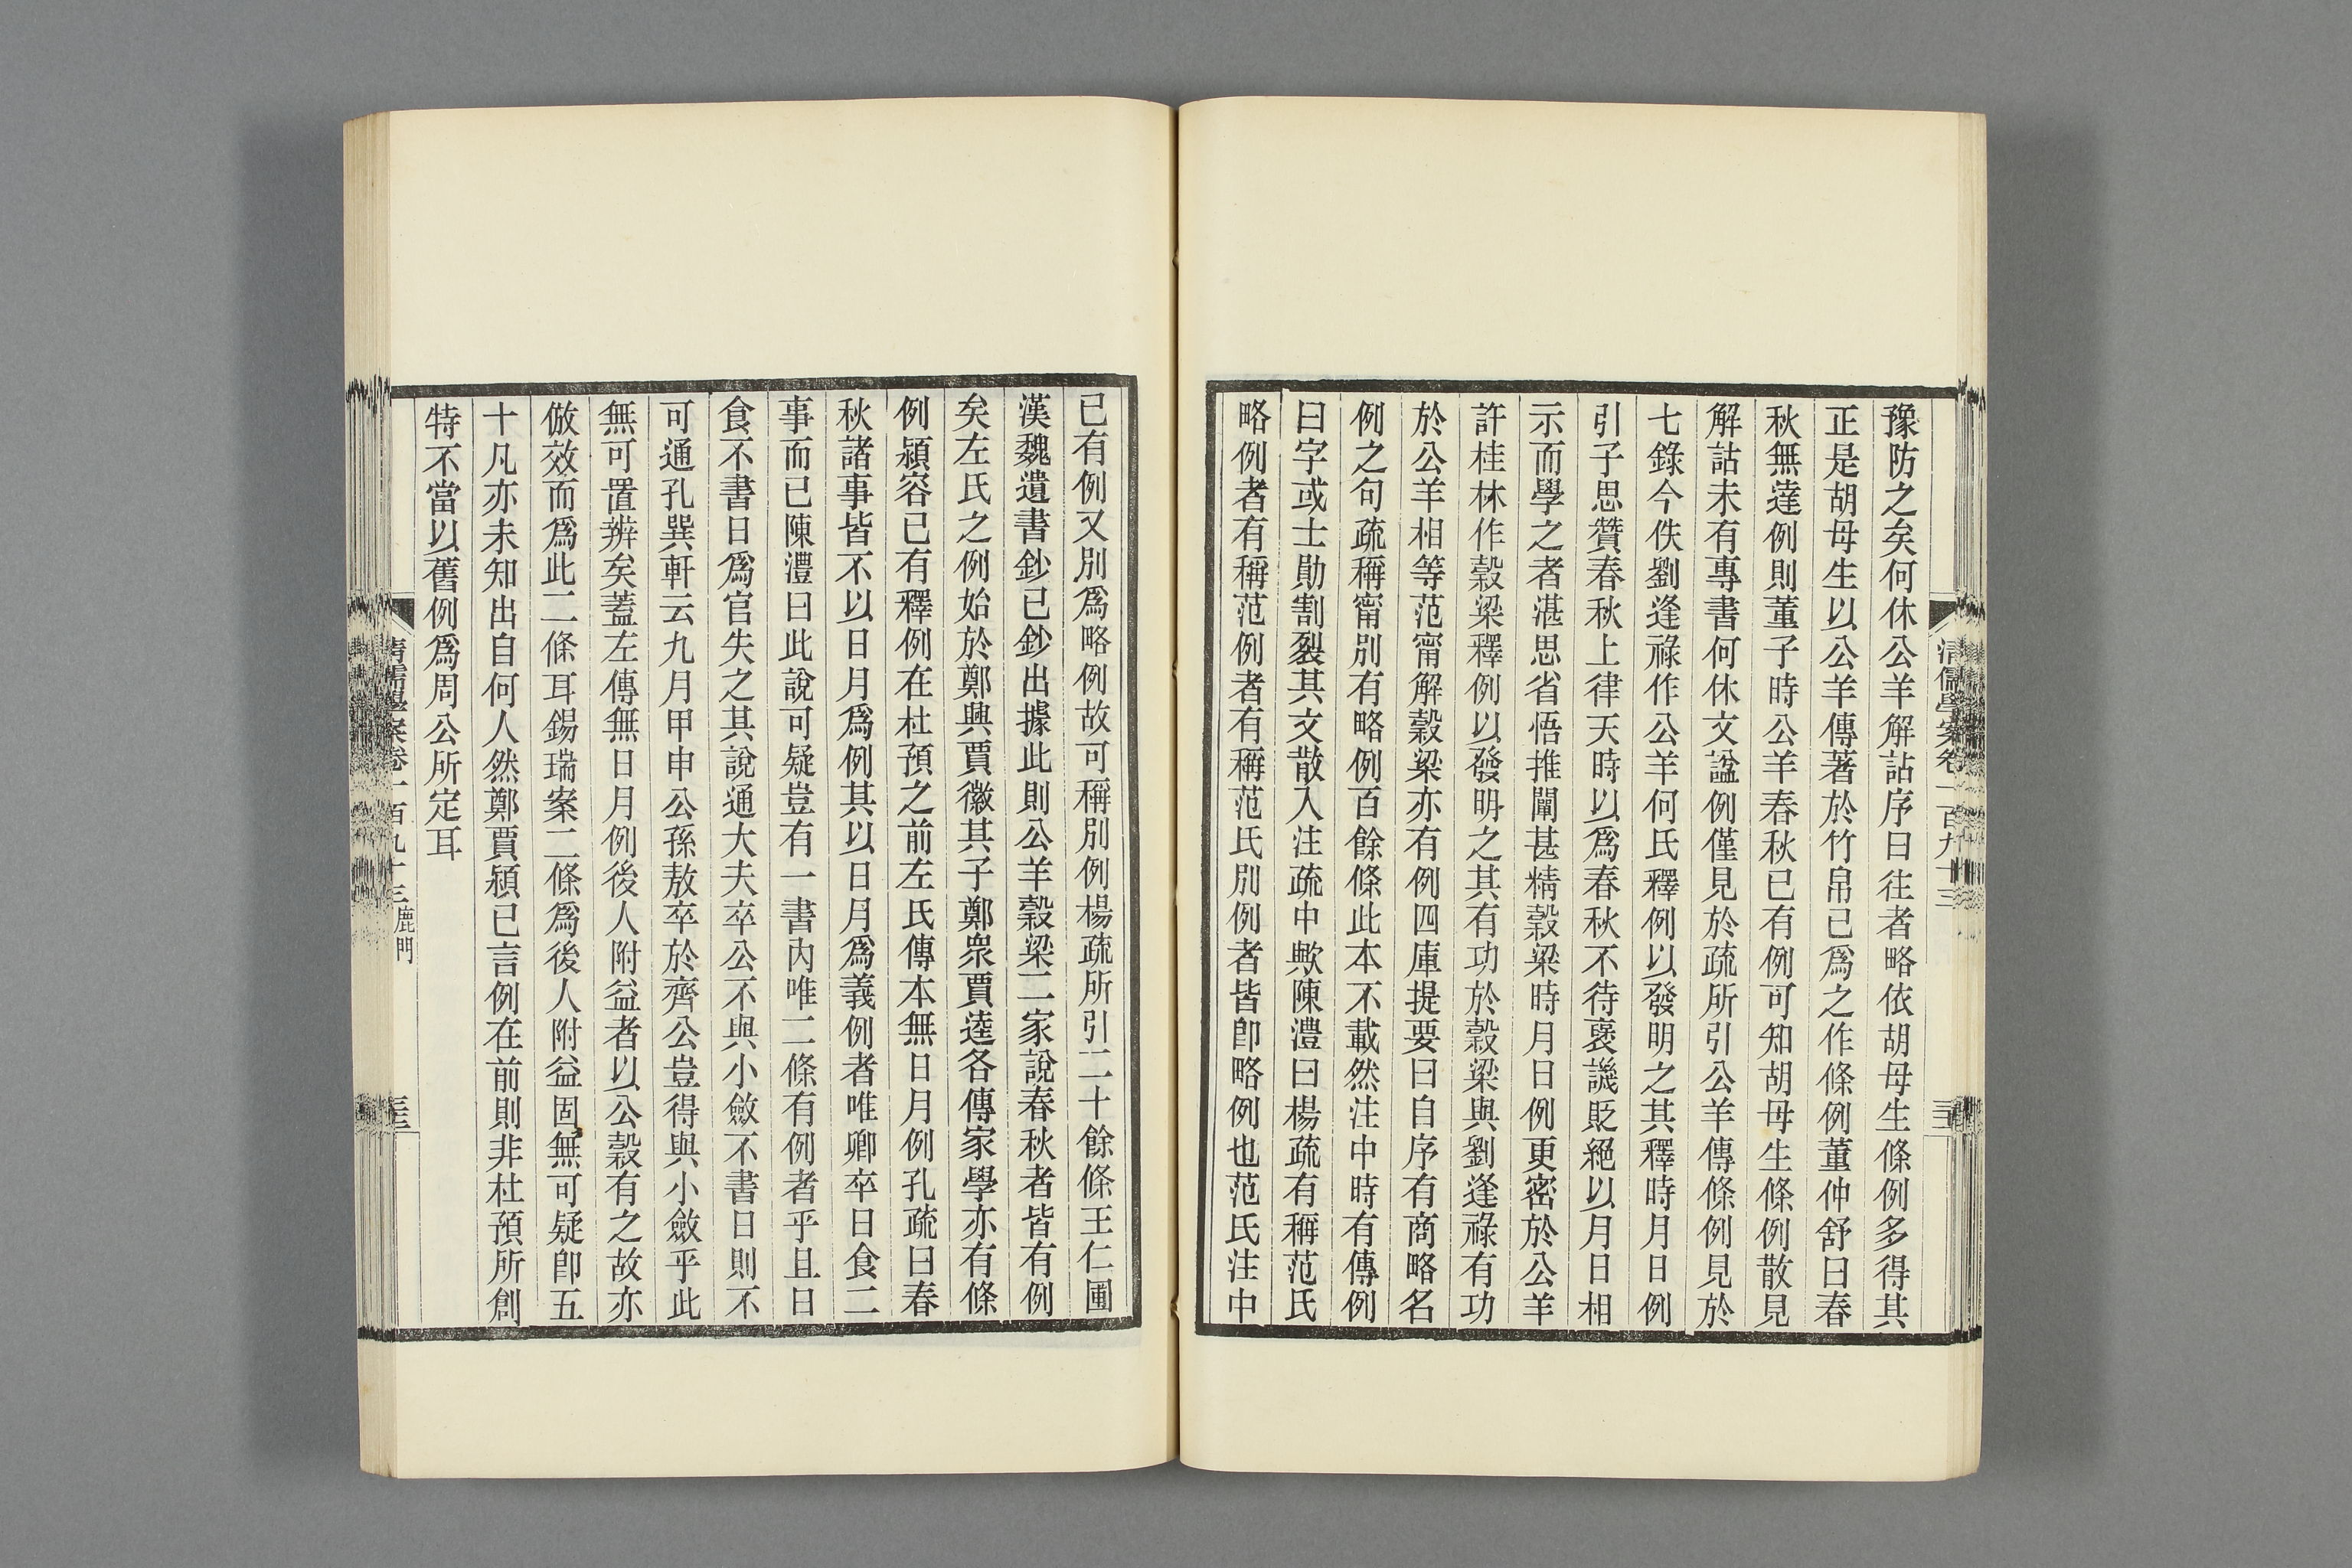 豫防之矣何休公羊解詁序曰往者略依胡母生條例多得其
正是胡母生以公羊傳著於竹帛已爲之作條例董仲舒曰春
秋無達例則董子時公羊春秋已有例可知胡母生條例散見
解詁未有專書何休文諡例僅見於疏所引公羊傳條例見於
七錄今佚劉逢祿作公羊何氏釋例以發明之其釋時月日例
引子思贊春秋上律天時以爲春秋不待褒譏貶絕以月日相
示而學之者湛思省悟推闡甚精穀梁時月日例更密於公羊
許桂林作穀梁釋例以發明之其有功於穀梁與劉逢祿有功
於公羊相等范甯解穀梁亦有例四庫提要曰自序有商略名
例之句疏稱甯別有略例百餘條此本不載然注中時有傳例
曰字或士勛割裂其文散入注疏中歟陳澧曰楊疏有稱范氏
略例者有稱范例者有稱范氏別例者皆卽略例也范氏注中
清儒學案卷一百九十三
已有例又別爲略例故可稱別例楊疏所引二十餘條王仁圃
漢魏遺書鈔已鈔出據此則公羊穀梁二家說春秋者皆有例
矣左氏之例始於鄭興賈徽其子鄭眾賈逵各傳家學亦有條
例潁容已有釋例在杜預之前左氏傳本無日月例孔疏曰春
秋諸事皆不以日月爲例其以日月爲義例者唯卿卒日食二
事而已陳澧曰此說可疑豈有一書內唯二條有例者乎且日
食不書日爲官失之其說通大夫卒公不與小斂不書日則不
可通孔巽軒云九月甲申公孫敖卒於齊公豈得與小斂乎此
無可置辨矣蓋左傳無日月例後人附益者以公穀有之故亦
倣效而爲此二條耳錫瑞案二條爲後人附益固無可疑卽五
十凡亦未知出自何人然鄭賈潁已言例在前則非杜預所創
特不當以舊例爲周公所定耳
清儒學案卷一百九十三 鹿門